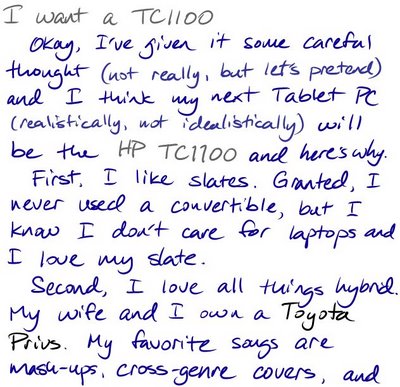 I want a TC1100
Okay, I've given it some careful
thought (not really, but let's pretend)
and I think my next Tablet PC
(realistically, not idealistically) will
be the HP TC1100 and here's why.
First, I like slates. Granted, I
never used a convertible, but I
know I don't care for laptops and
I love my slate.
Second, I love all things hybrid.
My wife and I own a Toyota
Prius. My favorite songs are
mash-ups, cross-genre covers, and